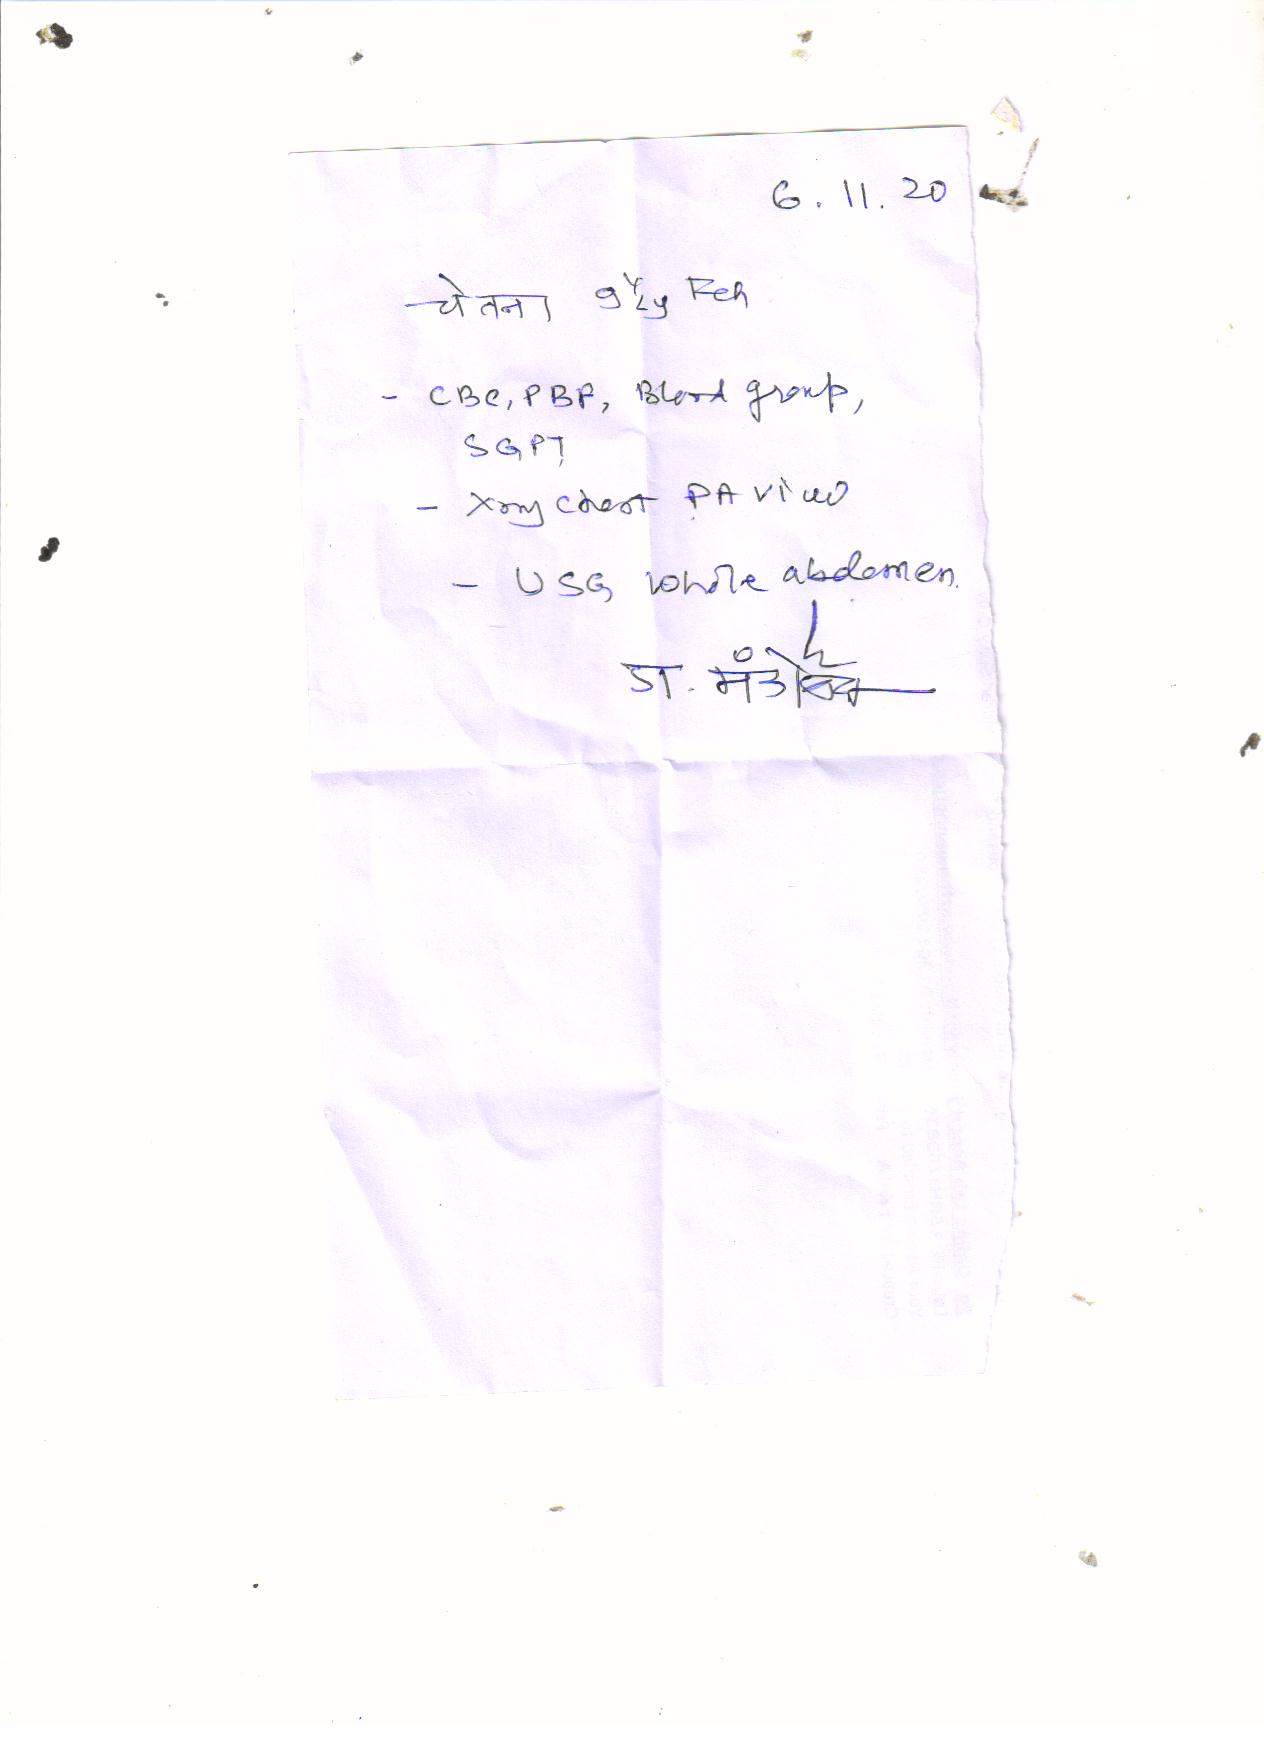 6.11.20
चेतना 9½y Feh
- CBC, PBF, Blood group,
SGPT
- Xray Chest PA view
- USG whole abdomen.
डा.